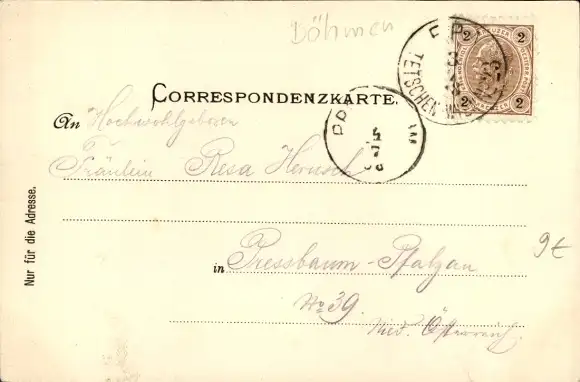 Böhmen
2 2
2 2
TETSCHEN
CORRESPONDENZKARTE.
An Hochwohlgeboren
Fräulein Resa
in Pressbaum-Pfalzau
No 39.
Nied. Österreich.
Nur für die Adresse.
9€